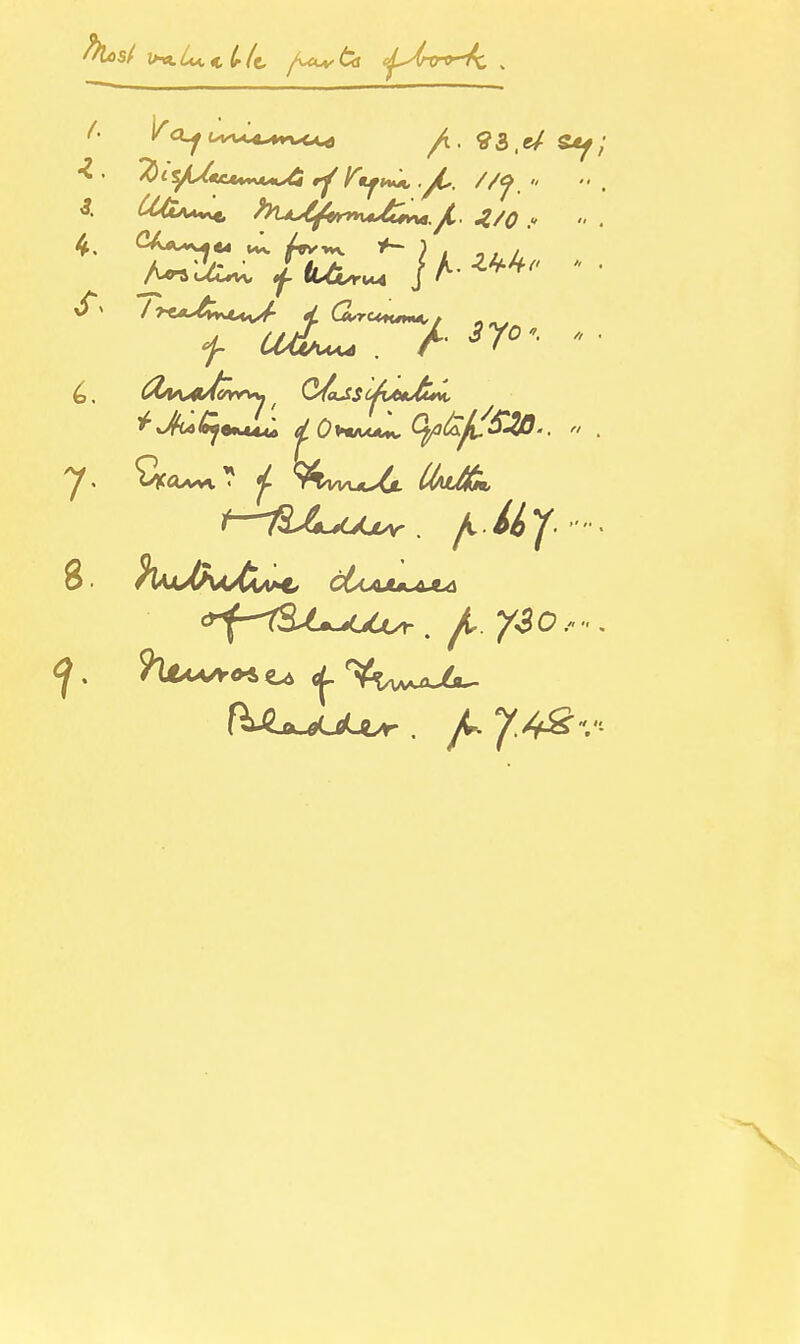 Most valuable parts of book.
1. Vaginismus p. 93, et seq;
2. Displacements of Vagina. p. 119. " " .
3. Uterine Malformations. p. 210 " " .
4. Changes in form + } p. 244 " " .
position of Uterus
5. Treatment of Carcinoma
of Uterus . p. 370 ". " .
6. Anatomy, Classification
+ Histogenesis of Ovarian Cysts p. 520 " " .
7. Exam.n of Female Urethra
+ Bladder . p. 667. " " .
8. Nutritive diseases
of Bladder . p. 730 " " .
9. Neuroses of Female
Bladder . p. 748 " "